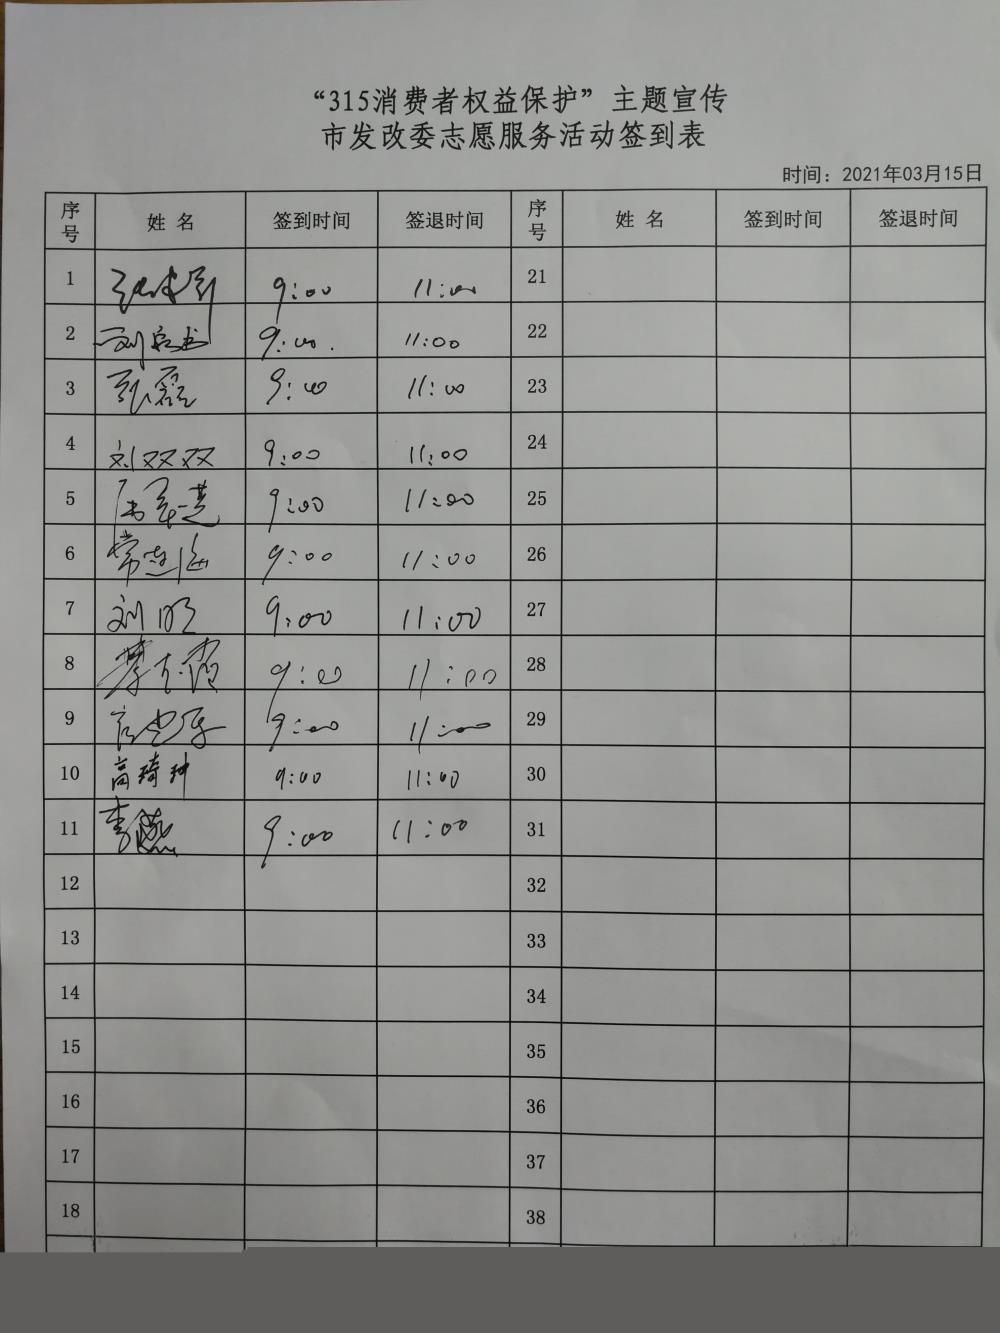 “315消费者权益保护”主题宣传
市发改委志愿服务活动签到表
时间：2021年03月15日
序号 姓名 签到时间 签退时间 序号 姓名 签到时间 签退时间
1 9:00 11:00 21
2 刘 9:00. 11:00 22
3 张磊 9:00 11:00 23
4 刘双双 9:00 11:00 24
5 9:00 11:00 25
6 常 9:00 11:00 26
7 刘明 9:00 11:00 27
8 9:00 11:00 28
9 9:00 11:00 29
10 高琦珅 9:00 11:00 30
11 李燕 9:00 11:00 31
12 32
13 33
14 34
15 35
16 36
17 37
18 38